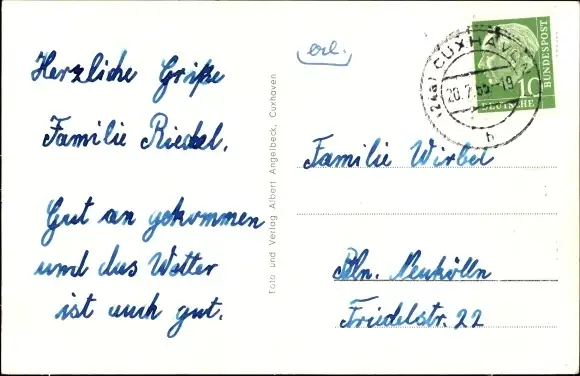 Herzliche Grüße
Familie Riedel.
Gut an gekommen
und das Wetter
ist auch gut.
Foto und Verlag Albert Angelbeck, Cuxhaven
erl.
(24a) CUXHAVEN
20.7.55-19
h
10
DEUTSCHE
BUNDESPOST
Familie Wirbel
Bln. Neukölln
Friedelstr. 22